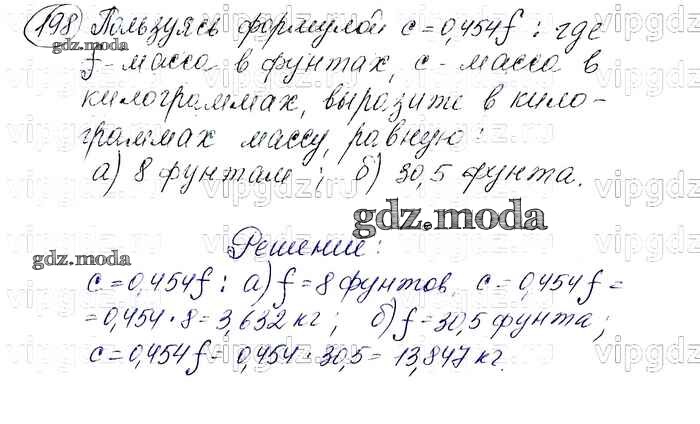 198 Пользуясь формулой c = 0,454f : где
f - масса в фунтах, c - масса в
килограммах, выразите в кило-
граммах массу, равную:
а) 8 фунтам ; б) 30,5 фунта.
gdz.moda
gdz.moda
Решение:
gdz.moda
c = 0,454f : а) f = 8 фунтов, c = 0,454f =
= 0,454 · 8 = 3,632 кг ; б) f = 30,5 фунта ;
c = 0,454f = 0,454 · 30,5 = 13,847 кг.
vipgdz.ru